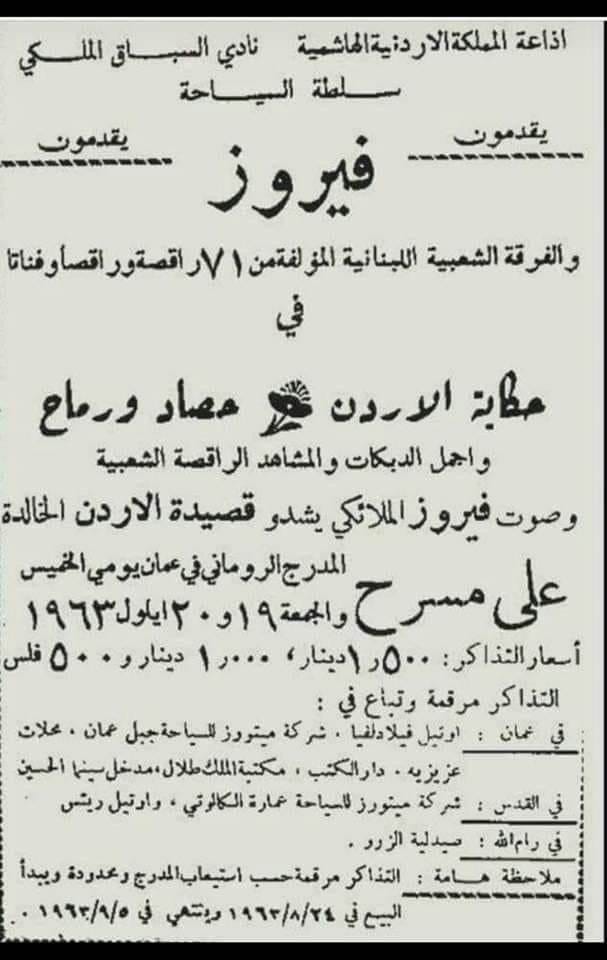 اذاعة المملكة الاردنية الهاشمية نادي السباق الملكي
سلطة السياحة
يقدمون يقدمون
فيروز
والفرقة الشعبية اللبنانية المؤلفة من ٧١ راقصة وراقصاً وفنانا
في
حكاية الاردن حصاد ورماح
واجمل الدبكات والمشاهد الراقصة الشعبية
وصوت فيروز الملائكي يشدو قصيدة الاردن الخالدة
على مسرح المدرج الروماني في عمان يومي الخميس
والجمعة ١٩ و ٢٠ ايلول ١٩٦٣
أسعار التذاكر: ١٫٥٠٠ دينار، ١٫٠٠٠ دينار و ٥٠٠ فلس
التذاكر مرقمة وتباع في :
في عمان : اوتيل فيلادلفيا ، شركة ميتورز للسياحة جبل عمان ، محلات
عزيزيه . دار الكتب ، مكتبة الملك طلال ، مدخل سينما الحسين
في القدس : شركة ميتورز للسياحة عمارة الكالوتي ، واوتيل ريتس
في رام الله : صيدلية الزرو .
ملاحظة هامة : التذاكر مرقمة حسب استيعاب المدرج ومحدودة ويبدأ
البيع في ١٩٦٣/٨/٢٤ وينتهي في ١٩٦٣/٩/٥ .